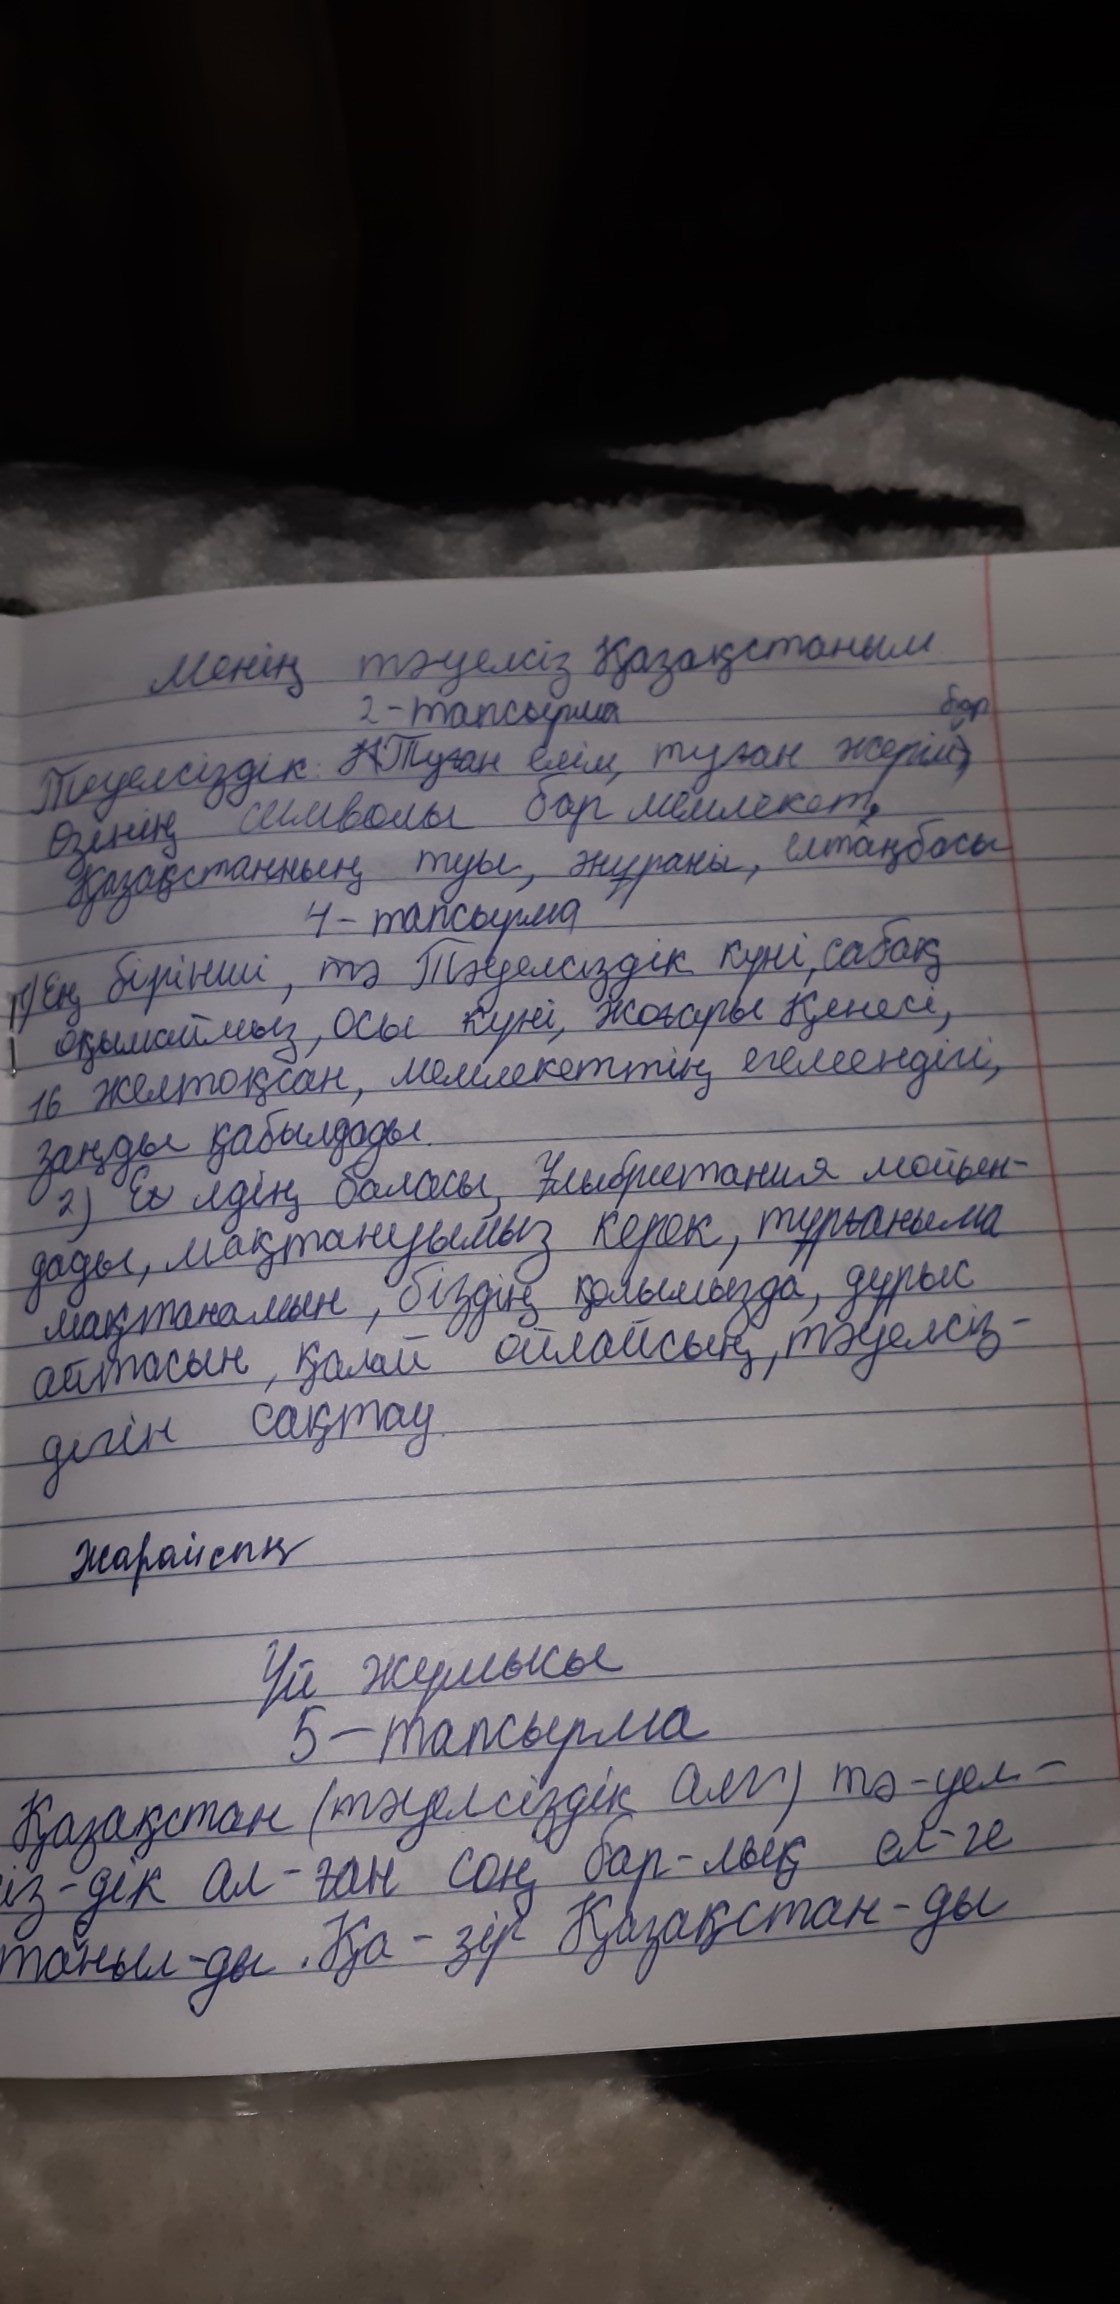 Менің тәуелсіз Қазақстаным
2-тапсырма
бар
Тәуелсіздік: Туған елім, туған жерім
Өзенің символы бар мемлекет,
Қазақстанның туы, жұраны, елтаңбасы
4-тапсырма
1) Ең бірінші, тә Тәуелсіздік күні, сабақ
оқымаймыз, осы күні, жоғары Кеңесі,
16 желтоқсан, мемлекеттің егемендігі,
заңды қабылдады.
2) Ел лдің баласы, Ұлыбритания мойын-
дады, мақтануымыз керек, тұрғаныма
мақтанамын, біздің қолымызда, дұрыс
айтасын, қалай ойлайсың, тәуелсіз-
дігін сақтау.
жарайсың
Үй жұмысы
5-тапсырма
Қазақстан (тәуелсіздік алғ) тә-уел-
сіз-дік ал-ған соң бар-лық ел-ге
таныл-ды. Қа-зір Қазақстан-ды